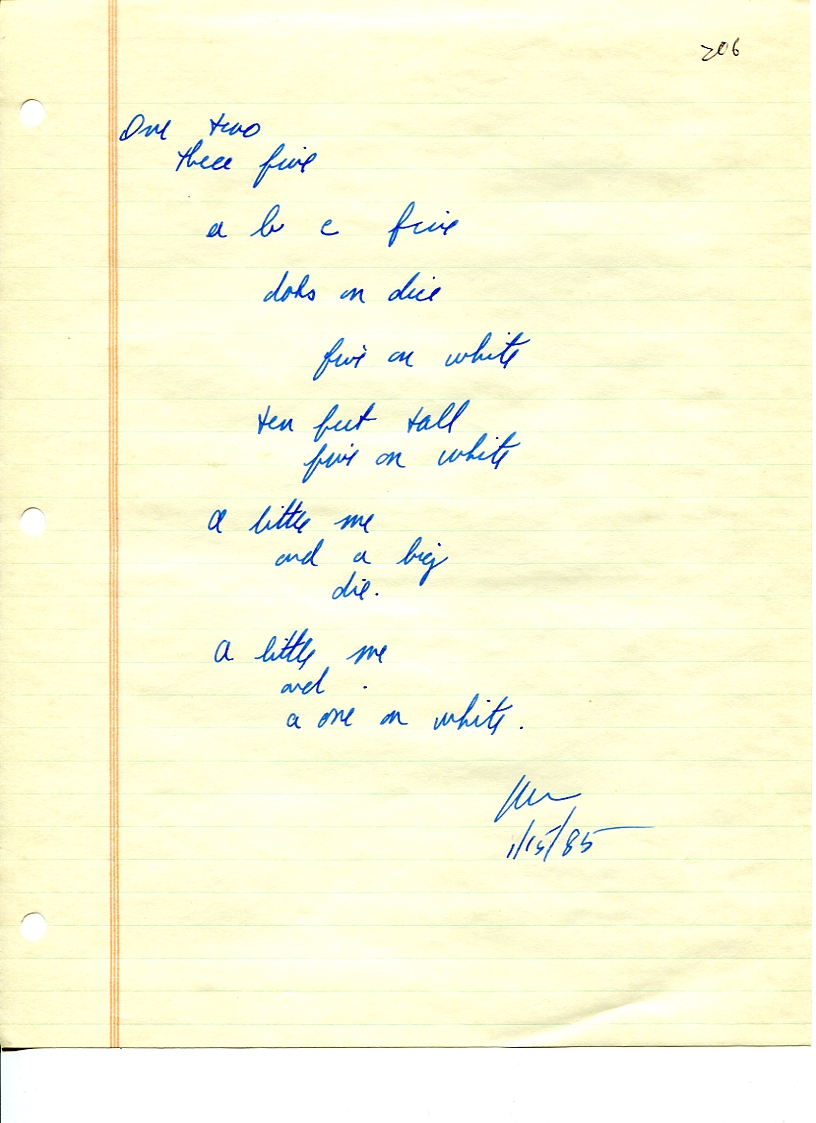 206
One two
three five
a b c five
dots on dice
five on white
ten feet tall
five on white
a little me
and a big
die.
a little me
and .
a one on white.
1/15/85